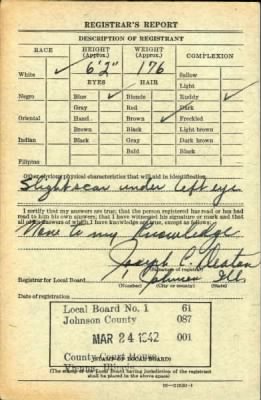 REGISTRAR'S REPORT
DESCRIPTION OF REGISTRANT
RACE HEIGHT (Approx.) WEIGHT (Approx.) COMPLEXION
White ✓ 6'2" 176 Sallow
EYES HAIR Light
Negro Blue ✓ Blonde Ruddy ✓
Gray Red Dark
Oriental Hazel Brown ✓ Freckled
Brown Black Light brown
Indian Black Gray Dark brown
Bald Black
Filipino
Other obvious physical characteristics that will aid in identification
Slight scar under left eye
I certify that my answers are true; that the person registered has read or has had
read to him his own answers; that I have witnessed his signature or mark and that
all of his answers of which I have knowledge are true, except as follows:
None to my Knowledge
Joseph C.
Registrar for Local Board 1 Johnson Ill.
(Number) (City or county) (State)
Date of registration
Local Board No. 1 61
Johnson County 087
MAR 24 1942 001
County Court House
Vienna, Illinois
(STAMP OF LOCAL BOARD)
(The stamp of the Local Board having jurisdiction of the registrant
shall be placed in the above space)